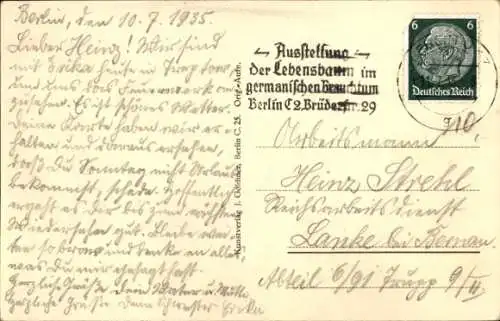 Berlin, den 10.7.1935.
Lieber Heinz! Wir sind
mit Erika heute in Treptow
und uns das Feuerwerk an-
zusehen. Es ist schönes Wetter.
Deine Karte haben wir er-
halten und daraus ersehen,
daß Du Sonntag nicht Urlaub
bekommst, schade. Hoffentlich
ergeht es Dir bis zum nächsten
Wiedersehen gut. Bleibe
so und denke an alles,
was Du mir gesagt hast.
Herzliche Grüße Dein Vater u. Mutti
Herzliche Grüße Deine Schwester Erika
Kunstverlag J. Goldiner, Berlin C. 25. Orig.-Aufn.
Ausstellung
der Lebensbaum im
germanischen Brauchtum
Berlin C2, Brüderstr. 29
6 6
Deutsches Reich
710
Arbeitsmann
Heinz Strehl
Reichsarbeitsdienst
Lanke bei Bernau
Abteil 6/91 Trupp 9/III